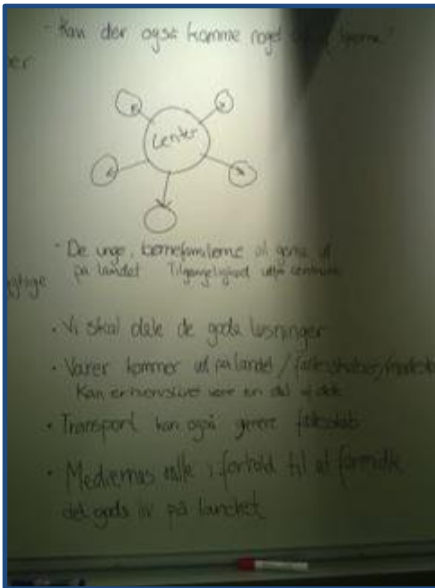 - Kan der også komme noget
er
Center
- De unge, børnefamilierne vil gerne ud
på landet Tilgængelighed
gtige
• Vi skal dele de gode løsninger
• Varer kommer ud på landet /
Kan erhvervslivet være en del af dette
• Transport kan også genere fællesskab
• Mediernes rolle i forhold til at formidle
det gode liv på landet